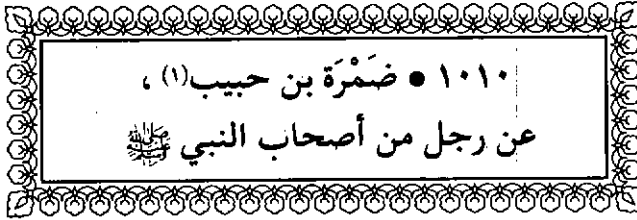 ١٠١٠ • ضَمْرَة بن حبيب(١) ،
عن رجل من أصحاب النبي ﷺ